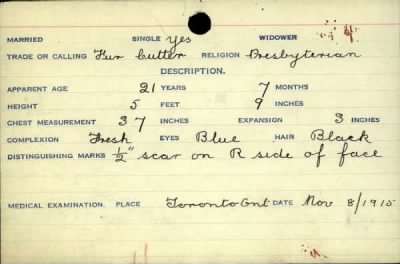 MARRIED SINGLE yes WIDOWER
TRADE OR CALLING Fur Cutter RELIGION Presbyterian
DESCRIPTION.
APPARENT AGE 21 YEARS 7 MONTHS
HEIGHT 5 FEET 9 INCHES
CHEST MEASUREMENT 37 INCHES EXPANSION 3 INCHES
COMPLEXION Fresh EYES Blue HAIR Black
DISTINGUISHING MARKS ½" scar on R side of face
MEDICAL EXAMINATION. PLACE Toronto Ont DATE Nov 8/1915